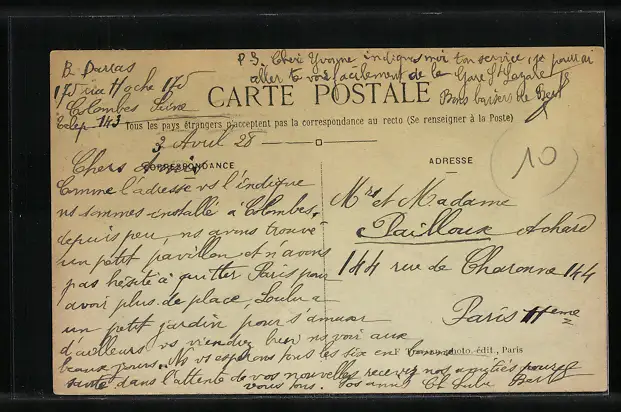 B. Darras
175 rue Hoche 175
Colombes Seine
Telep. 143
P.S. Chère Yvonne indiques moi ton service, je pourrai
aller te voir facilement de la Gare St Lazare
Bons baisers de
CARTE POSTALE
Tous les pays étrangers n'acceptent pas la correspondance au recto (Se renseigner à la Poste)
3 Avril 28
CORRESPONDANCE
Chers Amis
Comme l'adresse vs l'indique
ns sommes installé à Colombes.
depuis peu, ns avons trouvé
un petit pavillon et n'avons
pas hésité à quitter Paris pour
avoir plus de place, Loulou a
un petit jardin pour s'amuser
d'ailleurs vs viendrez bien ns voir aux
beaux jours. Ns vs espérons tous les six en bonne
santé, dans l'attente de vos nouvelles recevez nos amitiés pour
vous tous. Vos amis
ADRESSE
10
Mr et Madame
Pailloux Achard
144 rue de Charonne 144
Paris 11eme
photo. édit., Paris